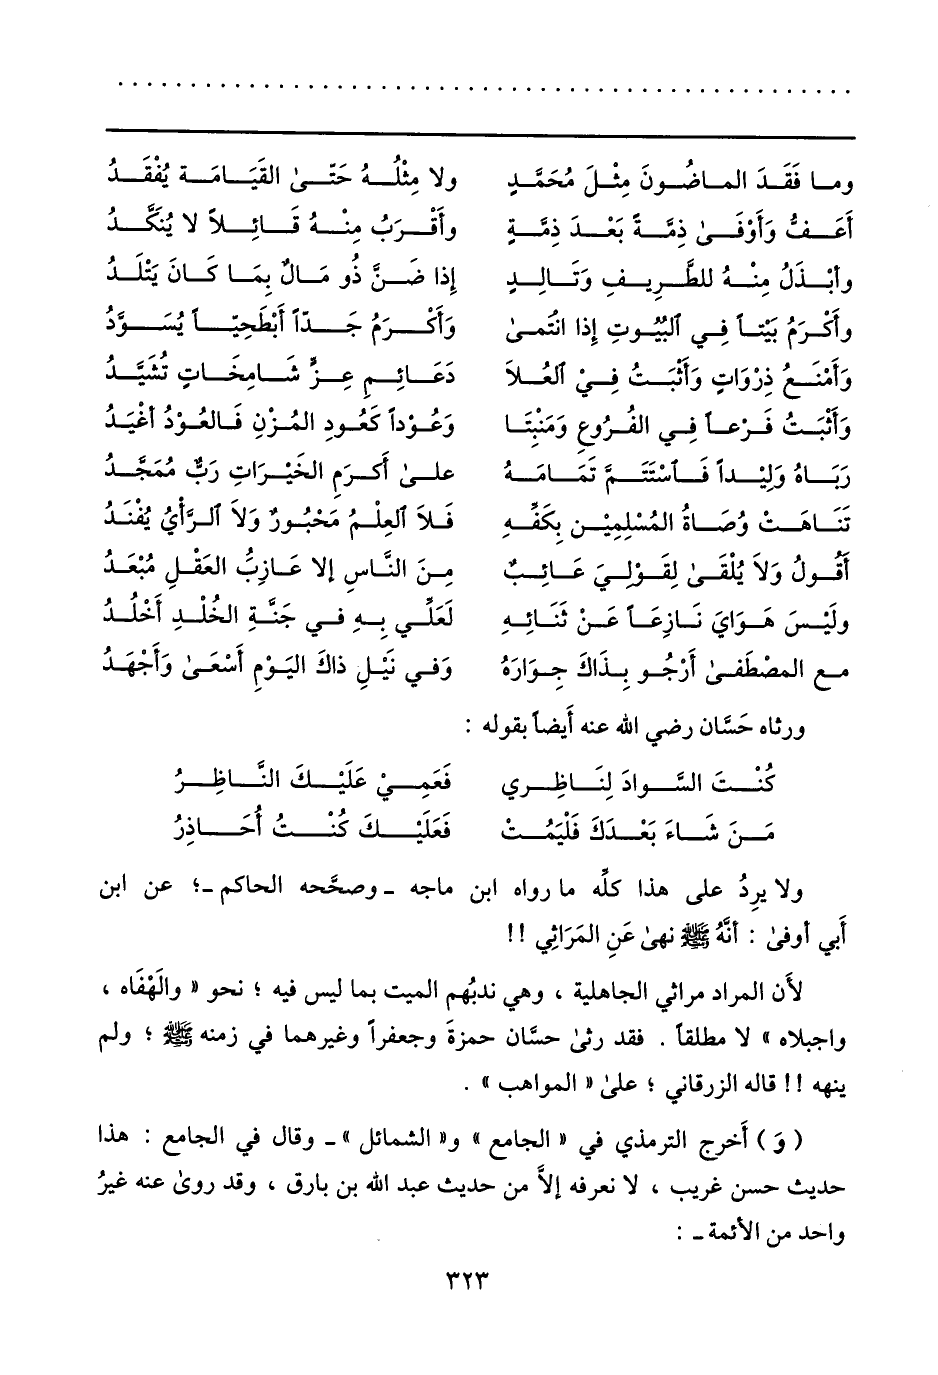 وما فَقَدَ الماضُونَ مِثْلَ مُحَمَّدٍ ولا مِثْلُهُ حَتَّىٰ القَيَامَةِ يُفْقَدُ
أَعَفُّ وَأَوْفَىٰ ذِمَّةً بَعْدَ ذِمَّةٍ وأَقْرَبُ مِنْهُ قَائِلاً لا يُنَكَّدُ
وأبْذَلُ مِنْهُ للطَّرِيفِ وَتَالِدٍ إذا ضَنَّ ذُو مَالٌ بِمَا كَانَ يَتْلَدُ
وأَكْرَمُ بَيْتاً فِي ٱلبُيُوتِ إِذا انْتُمىٰ وَأَكْرَمُ جَدّاً أَبْطَحِيّاً يُسَوَّدُ
وَأَمْنَعُ ذِرْوَاتٍ وَأَثْبَتُ فِيْ ٱلعُلاَ دَعَائِمِ عِزٍّ شَامِخَاتٍ تُشَيَّدُ
وَأَثْبَتُ فَرْعاً فِي الفُرُوعِ وَمَنْبِتَا وَعُوْداً كَعُودِ المُزْنِ فَالعُوْدُ أَغْيَدُ
رَبَاهُ وَلِيْداً فَٱسْتَتَمَّ تَمَامَهُ علىٰ أَكرَمِ الخَيْرَاتِ رَبٌّ مُمَجَّدُ
تَنَاهَتْ وُصَاةُ المُسْلِمِيْن بِكَفِّهِ فَلاَ ٱلعِلْمُ مَحْبُورٌ وَلاَ ٱلرَّأْيُ يُفْنَدُ
أَقُولُ وَلاَ يُلْقَىٰ لِقَوْلِيَ عَائِبٌ مِنَ النَّاسِ إلا عَازِبُ العَقْلِ مُبْعَدُ
ولَيْسَ هَوَايَ نَازِعَاً عَنْ ثَنَائِهِ لَعَلِّي بِهِ في جَنَّةِ الخُلْدِ أَخْلُدُ
مع المصْطَفىٰ أَرْجُو بِذَاكَ جِوَارَهُ وَفي نَيْلِ ذاكَ اليَوْمِ أَسْعَىٰ وَأَجْهَدُ
ورثاه حَسَّان رضي الله عنه أَيضاً بقوله :
كُنْتَ السَّوادَ لِنَاظِري فَعَمِيْ عَلَيْكَ النَّاظِرُ
مَنَ شَاءَ بَعْدَكَ فَلْيَمُتْ فَعَلَيْكَ كُنْتُ أُحَاذِرُ
ولا يرِدُ على هذا كلِّه ما رواه ابن ماجه ـ وصحَّحه الحاكم ـ؛ عن ابن
أَبي أوفىٰ : أنَّهُ ﷺ نهىٰ عَنِ المَرَاثِي !!
لأَن المراد مراثي الجاهلية ، وهي ندبُهم الميت بما ليس فيه ؛ نحو « والَهْفَاه ،
واجبلاه » لا مطلقاً . فقد رثىٰ حسَّان حمزةَ وجعفراً وغيرهما في زمنه ﷺ ؛ ولم
ينهه !! قاله الزرقاني ؛ علىٰ « المواهب » .
( وَ ) أَخرج الترمذي في « الجامع » و« الشمائل » ـ وقال في الجامع : هذا
حديث حسن غريب ، لا نعرفه إلاَّ من حديث عبد الله بن بارق ، وقد روىٰ عنه غيرُ
واحد من الأئمة ـ :
٣٢٣